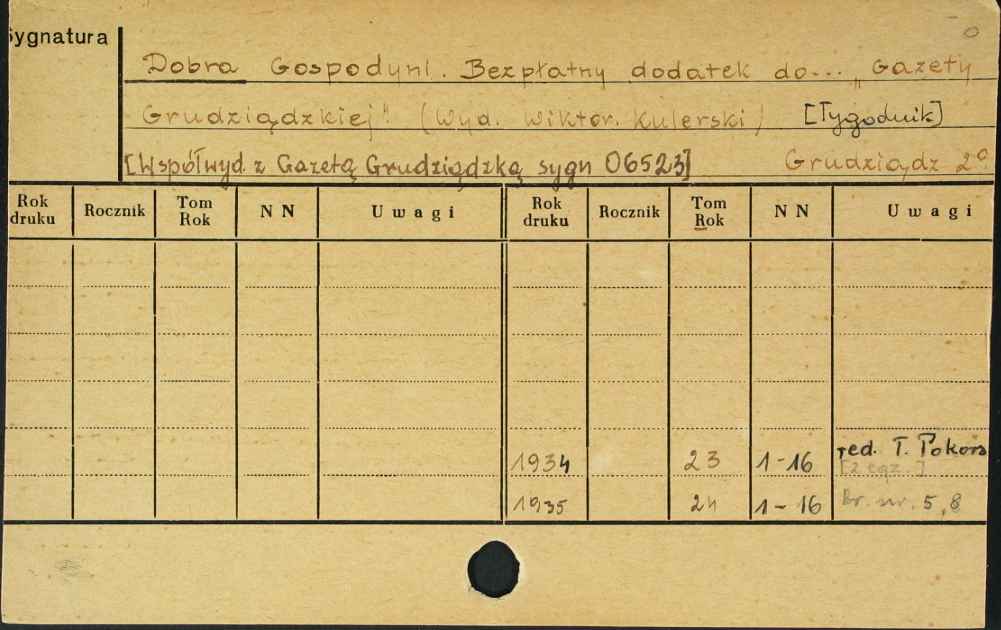 Sygnatura
Dobra Gospodyni. Bezpłatny dodatek do... „Gazety
Grudziądzkiej" (Wyd. Wiktor. Kulerski) [Tygodnik]
[Współwyd. z Gazetą Grudziądzką sygn 06523] Grudziądz 2°
Rok druku Rocznik Tom Rok NN Uwagi Rok druku Rocznik Tom Rok NN Uwagi
1934 23 1-16 red. T. Pokors
[2 egz.]
1935 24 1-16 Br. nr. 5,8